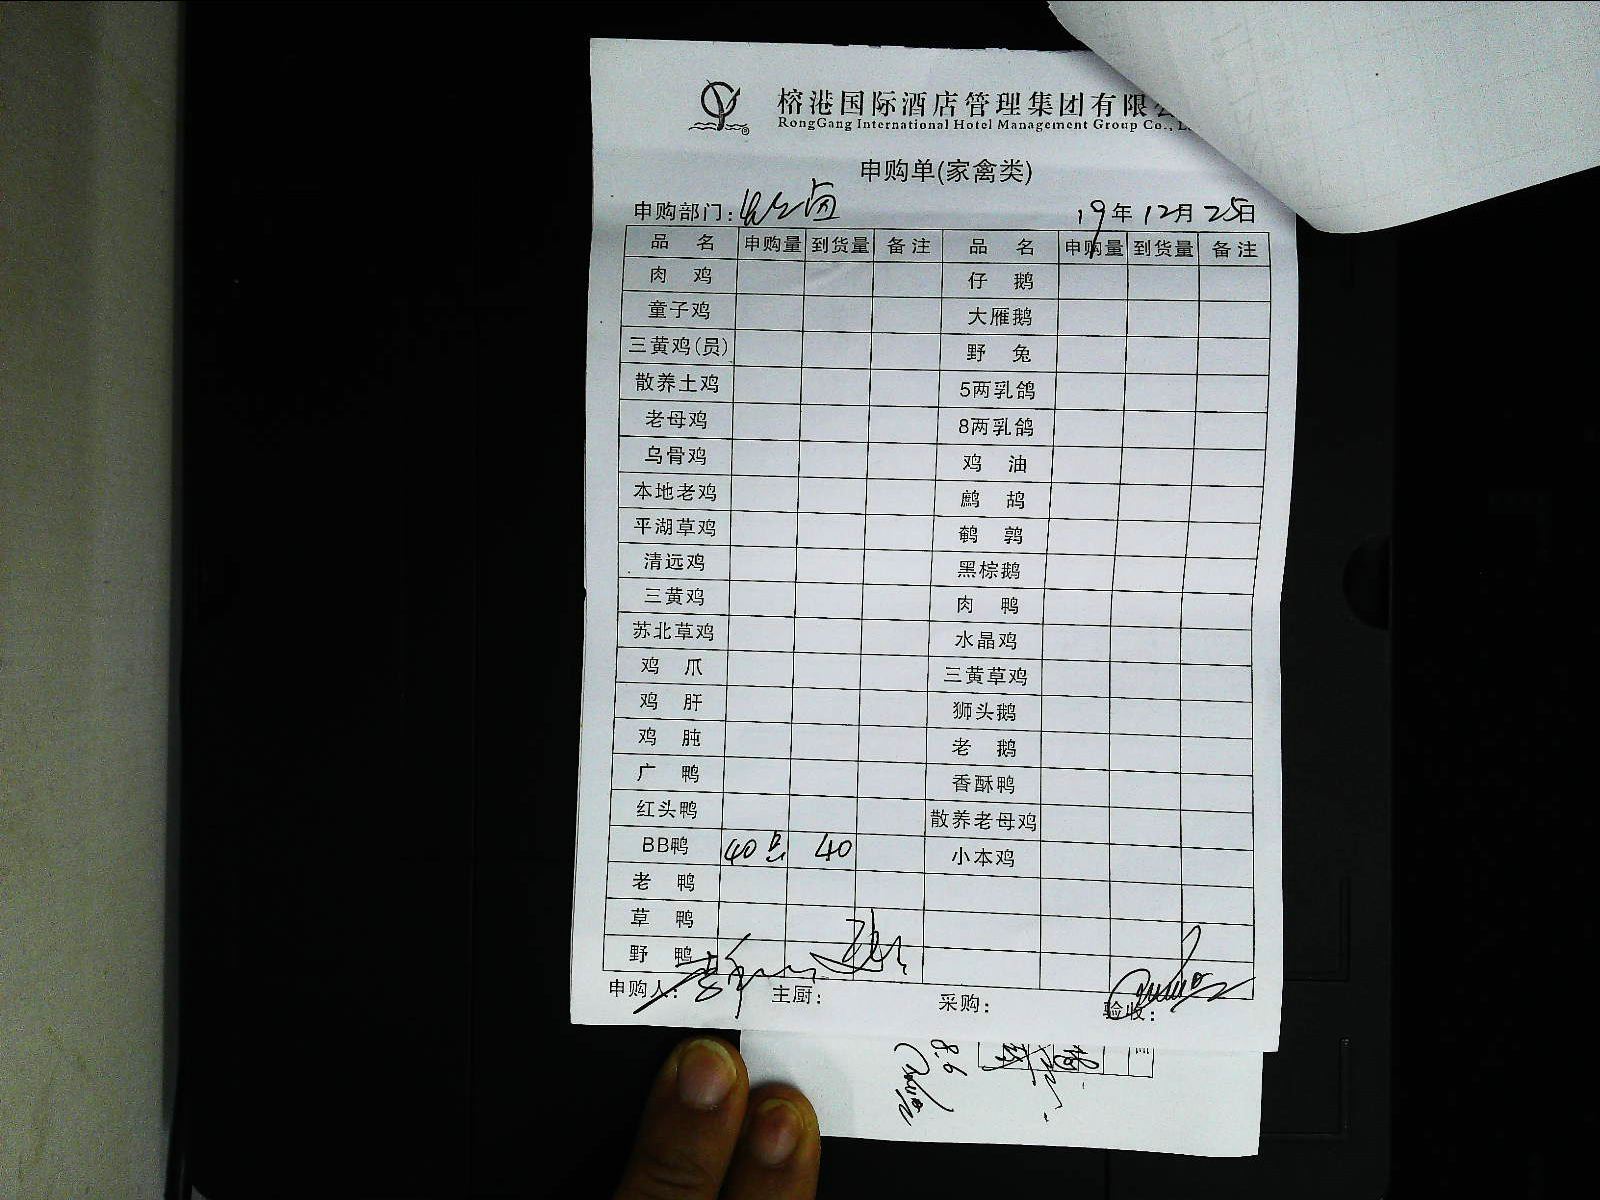 榕港国际酒店管理集团有限
RongGang International Hotel Management Group Co.,
申购单(家禽类)
申购部门: 19年12月25日
品 名 申购量 到货量 备注 品 名 申购量 到货量 备注
肉 鸡 仔 鹅
童子鸡 大雁鹅
三黄鸡(员) 野 兔
散养土鸡 5两乳鸽
老母鸡 8两乳鸽
乌骨鸡 鸡 油
本地老鸡 鹧 鸪
平湖草鸡 鹌 鹑
清远鸡 黑棕鹅
三黄鸡 肉 鸭
苏北草鸡 水晶鸡
鸡 爪 三黄草鸡
鸡 肝 狮头鹅
鸡 肫 老 鹅
广 鸭 香酥鸭
红头鸭 散养老母鸡
BB鸭 40 40 小本鸡
老 鸭
草 鸭
野 鸭
申购人: 主厨: 采购: 验收:
8.6